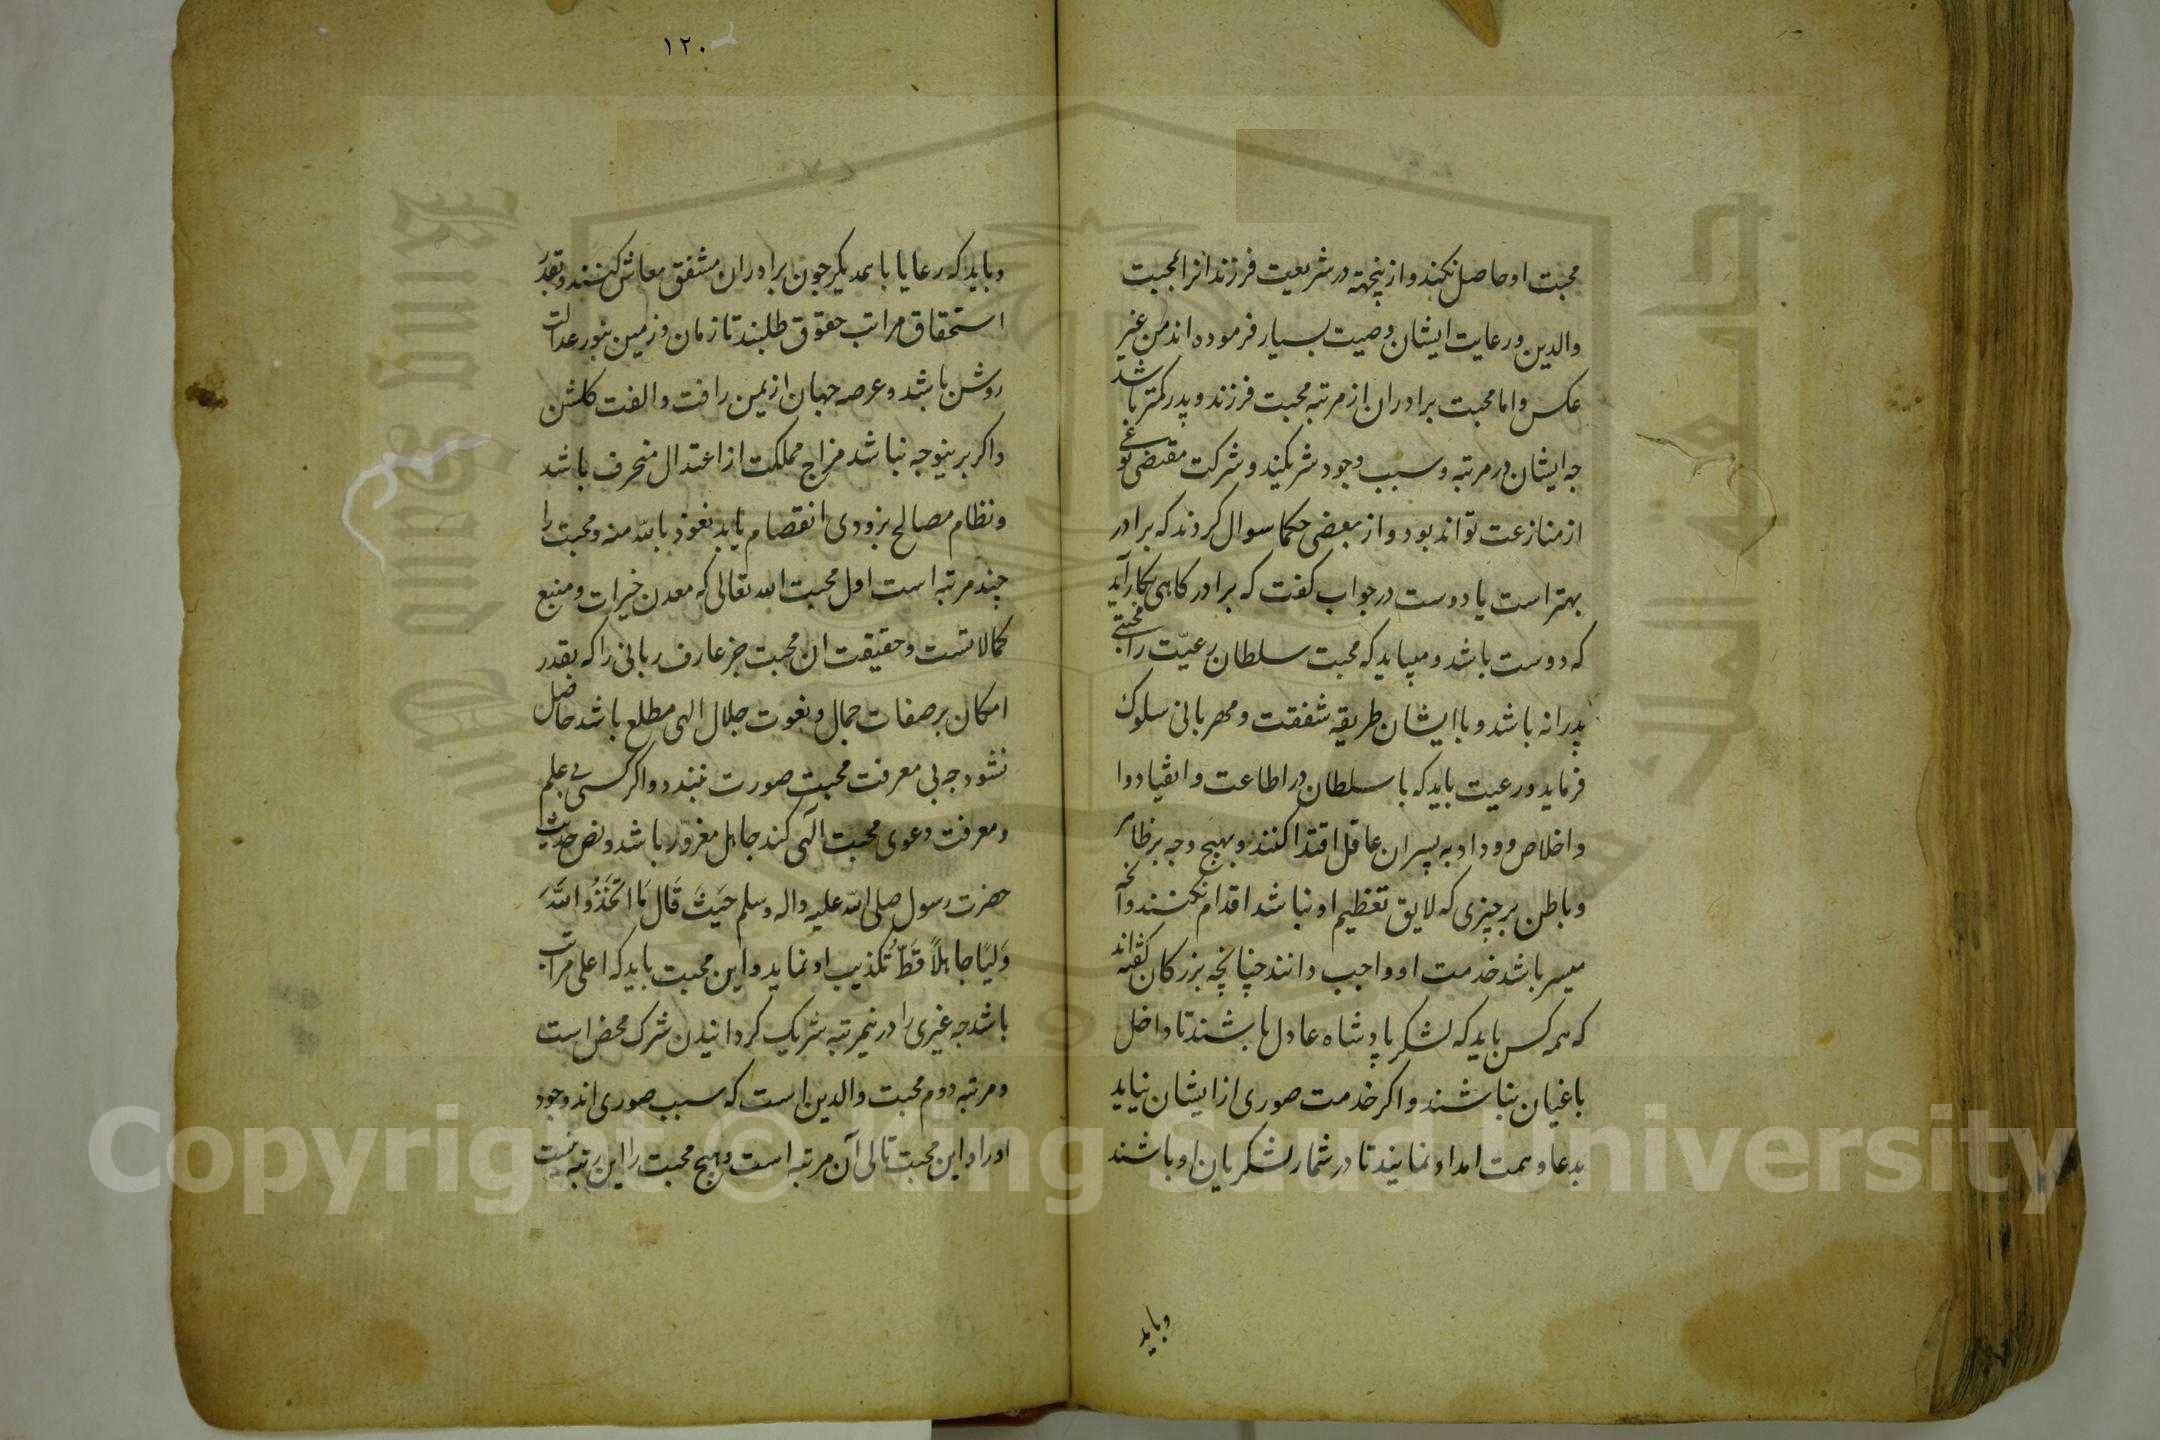 محبت او حاصل نکند و ازینجهة در شریعت فرزندانرا بمحبت
والدین و رعایت ایشان وصیت بسیار فرموده اند من غیر
عکس و اما محبت برادران از مرتبه محبت فرزند و پدر کمتر باشد
جه ایشان در مرتبه و سبب وجود شریکند و شرکت مقتضی نوعی
از منازعت تواند بود و از بعضی حکما سوال کردند که برادر
بهتر است یا دوست در جواب کفت که برادر کاهی بکار آید
که دوست باشد و میباید که محبت سلطان رعیّت را محبتی
پدرانه باشد و با ایشان طریقه شفقت و مهربانی سلوک
فرماید و رعیت باید که با سلطان در اطاعت و انقیاد و ا
و اخلاص و وداد به پسران عاقل اقتدا کنند و بهیج وجه بر ظاهر
و باطن بر چیزی که لایق تعظیم او نباشد اقدام نکنند و آنچه
میسر باشد خدمت او واجب دانند چنانچه بزرکان کفته اند
که همه کس باید که لشکر پادشاه عادل باشند تا داخل
باغیان نباشند و اکر خدمت صوری از ایشان نیاید
بدعا و همت امداد نمایند تا در شمار لشکریان او باشند
و باید
١٢٠
و باید که رعایا با همدیکر جون برادران مشفق معاش کنند و بقدر
استحقاق مراتب حقوق طلبند تا زمان و زمین بنور عدالت
روشن باشد و عرصه جهان از یمن رافت و الفت کلشن
و اکر برینوجه نباشد مزاج مملکت از اعتدال منحرف باشد
و نظام مصالح بزودی انقصام یابد نعوذ بالله منه و محبت را
چند مرتبه است اول محبت الله تعالی که معدن خیرات و منبع
کمالاتست و حقیقت ان محبت جز عارف ربانی را که بقدر
امکان بر صفات جمال و نعوت جلال الهی مطلع باشد حاصل
نشود جه بی معرفت محبت صورت نبندد و اکر کسی بی علم
و معرفت دعوی محبت الهی کند جاهل مغرور باشد و نص حدیث
حضرت رسول صلی الله علیه واله وسلم حَیثُ قَالَ مَا اتَّخَذَ اللّٰهُ
وَلیًا جاهلاً قَطّ تکذیب او نماید و این محبت باید که اعلی مراتب
باشد جه غیری را درینمرتبه شریک کردانیدن شرک محض است
و مرتبه دوم محبت والدین است که سبب صوری اند وجود
او را و این محبت تالی آن مرتبه است و هیج محبت را این رتبه نیست
Copyright © King Saud University